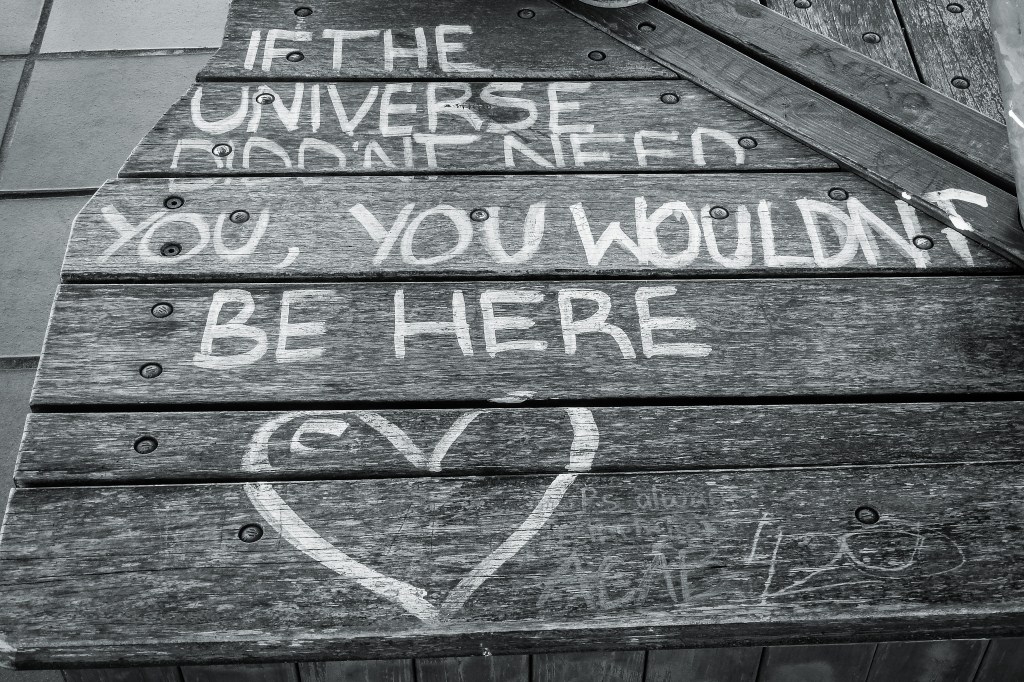 IF THE
UNIVERSE
DIDD'NT NEED
YOU, YOU WOULDN'T
BE HERE
P.s alway
420